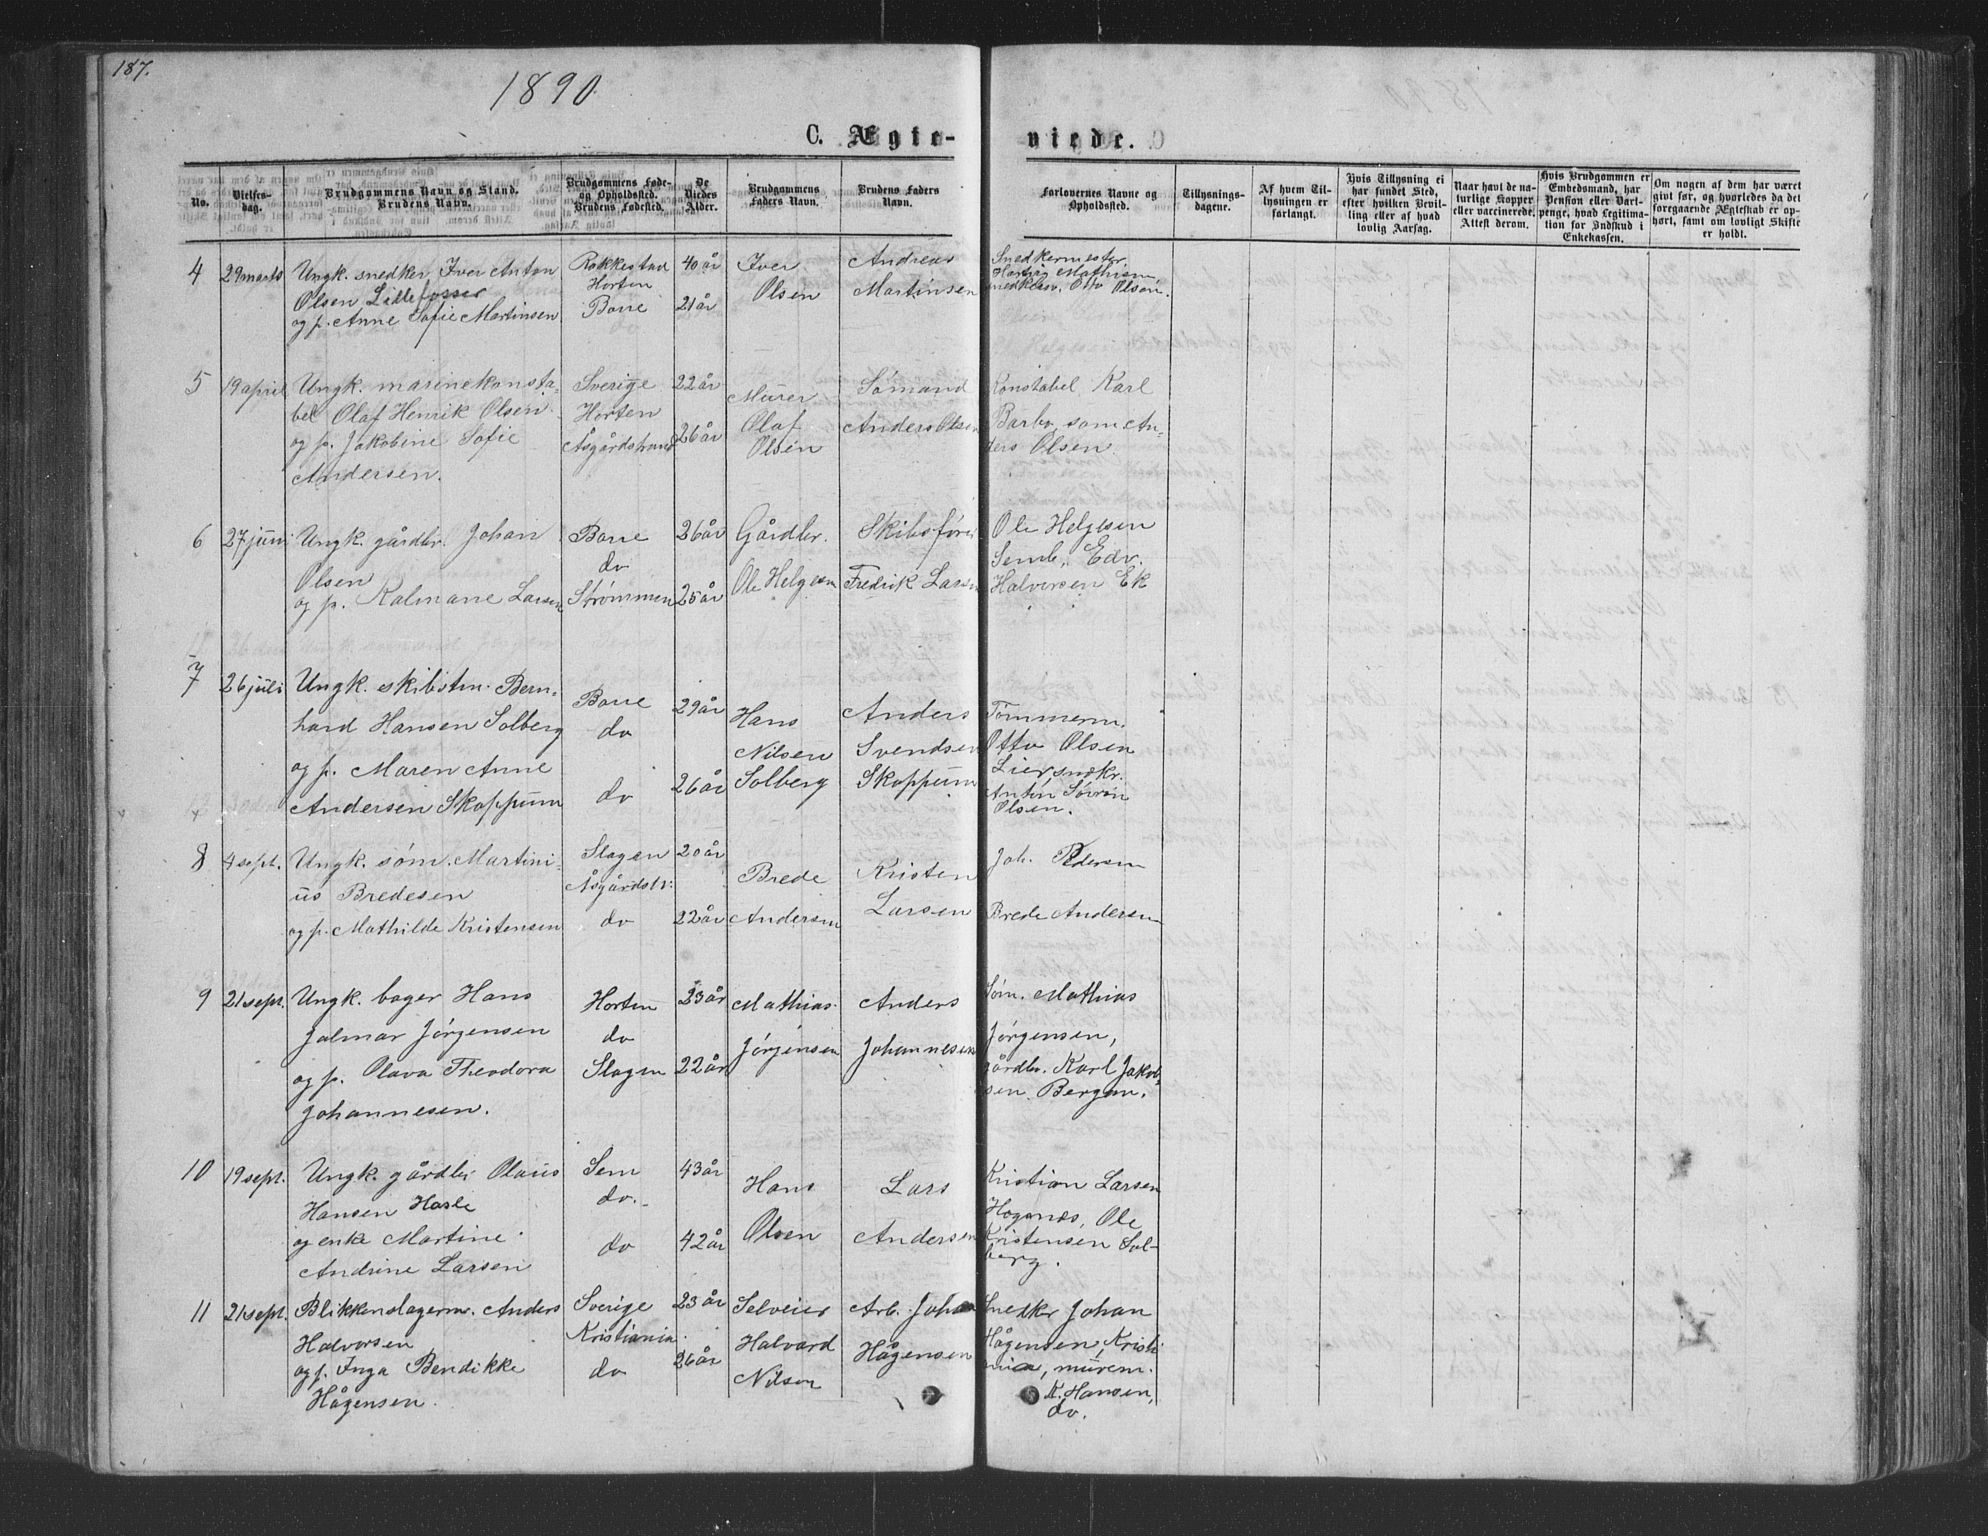 187.
1890
C. Ægte-
viede.
No.
Vielses-
dag.
Brudgommens Navn og Stand.
Brudens Navn.
Brudgommens Føde-
og Opholdssted.
Brudens Fødested.
De
Viedes
Alder.
Brudgommens
Faders Navn.
Brudens Faders
Navn.
Forlovernes Navne og
Opholdssted.
Tillysnings-
dagene.
Af hvem Til-
lysningen er
forlangt.
Hvis Tillysning ei
har fundet Sted,
efter hvilken Bevil-
ling eller af hvad
lovlig Aarsag.
Naar havt de na-
turlige Kopper
eller vaccinerede.
Attest derom.
Hvis Brudgommen er
Embedsmand, har
Pension eller Vart-
penge, hvad Legitima-
tion for Indskud i
Enkekassen.
Om nogen af dem har været
givt før, og hvorledes da det
foregaaende Ægteskab er op-
hørt, samt om lovligt Skifte
er holdt.
4
29 marts
Ungk. snedker Iver Anton
Olsen Lillefosser
og p. Anne Sofie Martinsen
Rakkestad
Horten
Borre
40 år
21 år
Iver
Olsen
Andreas
Martinsen
Snedkermester
Mathisen
Otto Olsen.
5
19 april
Ungk. marinekonsta-
bel Olaf Henrik Olsen
og p. Jakobine Sofie
Andersen.
Sverige
Horten
Åsgårdstrand
22 år
26 år
Murer
Olaf
Olsen
Sømand
Anders Olsen
Konstabel Karl
Barbo, søm. An-
ders Olsen.
6
27 juni
Ungk. gårdbr. Johan
Olsen
og p. Kalmane Larsen
Borre
do
Strømmen
26 år
25 år
Gårdbr.
Ole Helgesen
Skibsfører
Fredrik Larsen
Ole Helgesen
Semb, Edv.
Halvorsen Ek
7
26 juli
Ungk. skibstm. Bern-
hard Hansen Solberg
og p. Maren Anne
Andersen Skoppum
Borre
do
do
29 år
26 år
Hans
Nilsen
Solberg
Anders
Svendsen
Skoppum
Tømmerm.
Otto Olsen
Lier snedkr.
Anton Søren
Olsen.
8
4 sept.
Ungk. søm. Martini-
us Bredesen
og p. Mathilde Kristensen
Slagen
Åsgårdstr.
do
20 år
22 år
Brede
Andersen
Kristen
Larsen
Joh. Pedersen
Brede Andersen
9
21 sept.
Ungk. bager Hans
Jalmar Jørgensen
og p. Olava Theodora
Johannesen.
Horten
do
Slagen
23 år
22 år
Mathias
Jørgensen
Anders
Johannesen
Søm. Mathias
Jørgensen,
gårdbr. Karl Jakob-
sen Bergan.
10
19 sept.
Ungk. gårdbr Olaus
Hansen Hasle
og enke Martine
Andrine Larsen
Sem
do.
do
43 år
42 år
Hans
Olsen
Lars
Andersen
Kristian Larsen
Høgenes, Ole
Kristensen Sol-
berg.
11
21 sept.
Blikkenslagerm. Anders
Halvorsen
og p. Inga Bendikke
Hågensen.
Sverige
Kristiania
do
23 år
26 år
Selveier
Halvard
Nilsen
Arb. Johan
Hågensen
Snedkr Johan
Hågensen, Kristi-
ania, murem.
K. Hansen,
do.